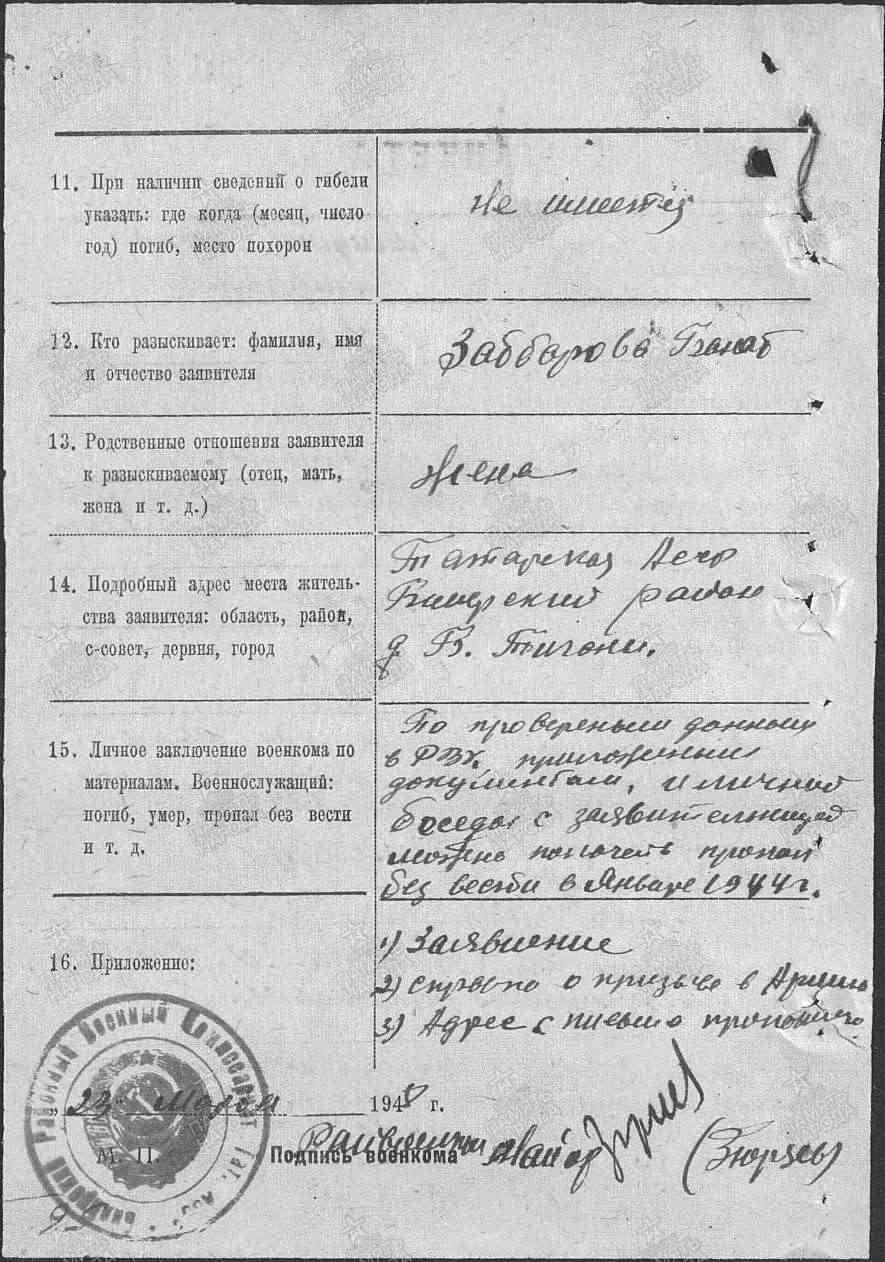 11. При наличии сведений о гибели
указать: где когда (месяц, число
год) погиб, место похорон
Не имеется
12. Кто разыскивает: фамилия, имя
и отчество заявителя
Заббарова
13. Родственные отношения заявителя
к разыскиваемому (отец, мать,
жена и т. д.)
Жена
14. Подробный адрес места житель-
ства заявителя: область, район,
с-совет, дервня, город
Татарская Асср
район
д. Б. Тигони.
15. Личное заключение военкома по
материалам. Военнослужащий:
погиб, умер, пропал без вести
и т. д.
По провереным данным
в РВК, приложеным
документам, и личной
беседы с заявительницей
можно пропал
без вести в Январе 1944 г.
16. Приложение:
1) Заявление
2) справка о призыве в Армию
3) Адрес с письма
Районный Военный Комиссариат Тат. АССР
„23 Марта 1948 г.
М. П.
Подпись военкома
Райвоенком Майор